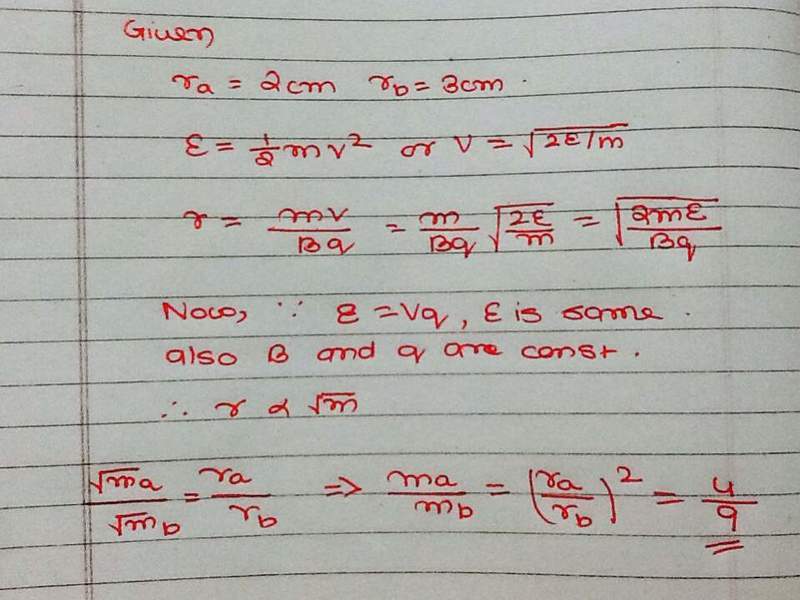 Given
ra = 2cm rb = 3cm.
ε = 1/2 mv² or v = √2ε/m
r = mv/Bq = m/Bq √2ε/m = √2mε/Bq
Now, ∵ ε = Vq, ε is same.
also B and q are const.
∴ r ∝ √m
√ma/√mb = ra/rb ⇒ ma/mb = (ra/rb)² = 4/9